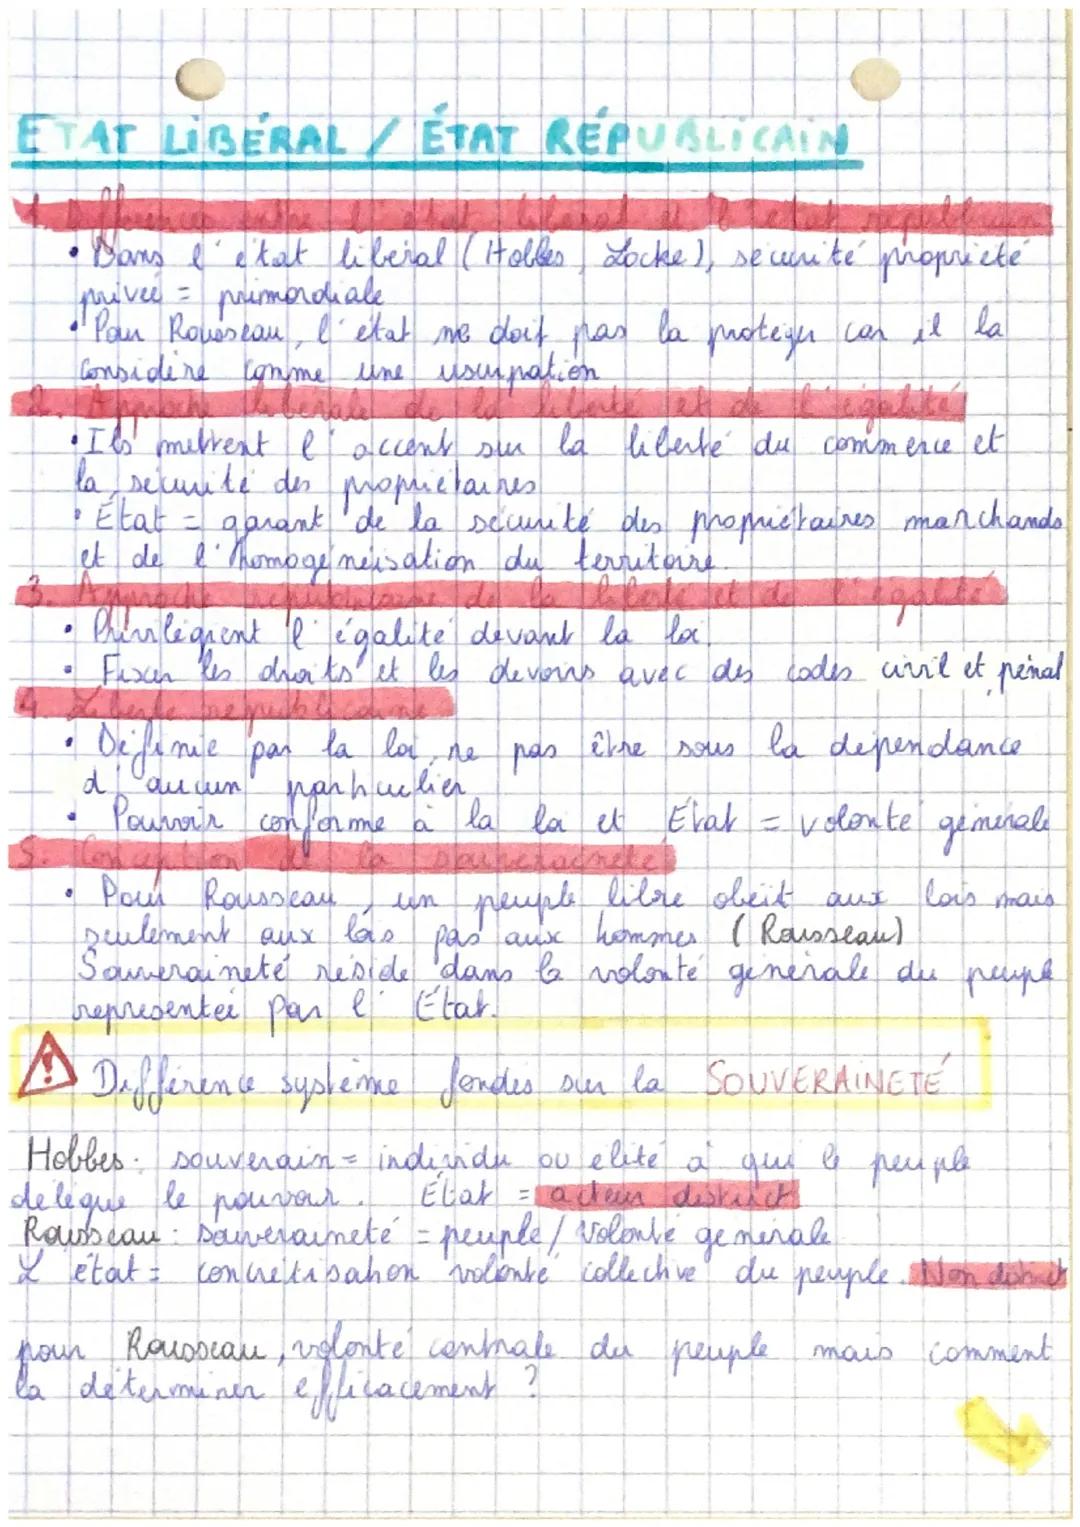 ETAT LIBÉRAL / ÉTAT RÉPUBLICAIN
1. Différences entre l'état libéral et l'état républicain
• Dans l'état libéral (Hobbes, Locke), sécurité propriété
privée = primordiale
• Pour Rousseau, l'état ne doit pas la protéger car il la
considère comme une usurpation
2. Approche libérale de la liberté et de l'égalité
• Ils mettent l'accent sur la liberté du commerce et
la sécurité des propriétaires
• État = garant de la sécurité des propriétaires marchands
et de l'homogénéisation du territoire.
3. Approche républicaine de la liberté et de l'égalité
• Privilégient l'égalité devant la loi.
• Fixer les droits et les devoirs avec des codes civil et pénal
4. Liberté républicaine
• Définie par la loi, ne pas être sous la dépendance
d'aucun particulier
• Pouvoir conforme à la loi et État = volonté générale
5. Conception de la souveraineté
• Pour Rousseau, un peuple libre obéit aux lois mais
seulement aux lois pas aux hommes (Rousseau)
Souveraineté réside dans la volonté générale du peuple
représentée par l'État.
Différence système fondés sur la SOUVERAINETÉ
Hobbes: souverain = individu ou élite à qui le peuple
délègue le pouvoir. État = acteur distinct
Rousseau: souveraineté = peuple / volonté générale
L'état = concrétisation volonté collective du peuple. Non distinct
pour Rousseau, volonté centrale du peuple mais comment
la déterminer efficacement ?